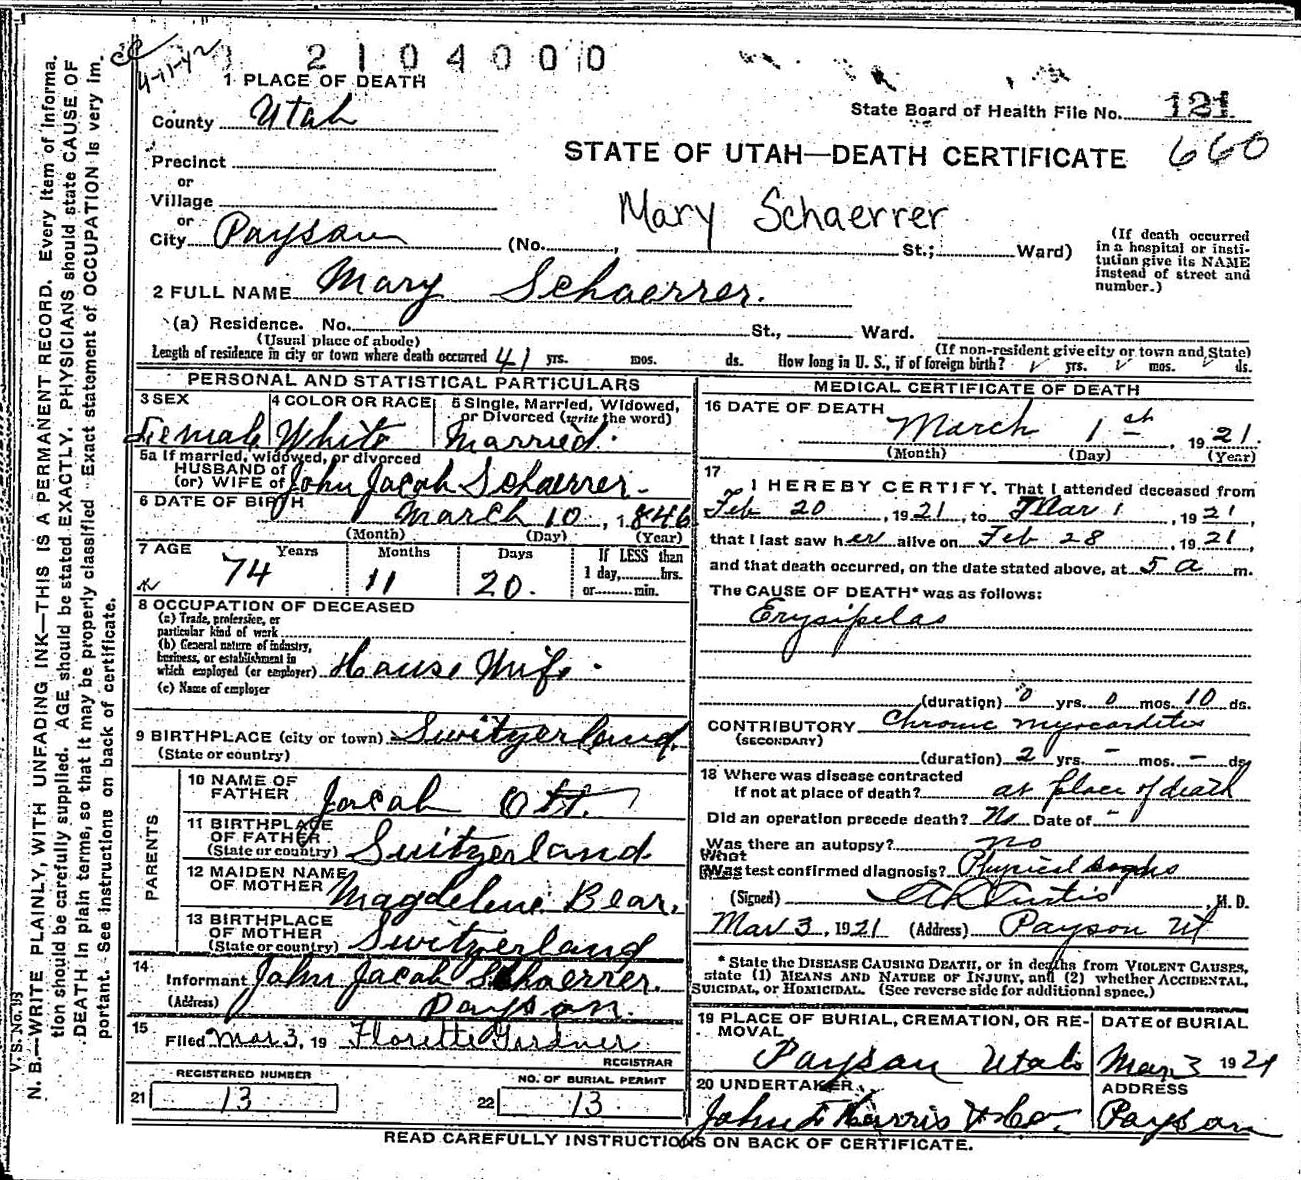 4-11-42
2104000
1 PLACE OF DEATH
State Board of Health File No. 121
660
County Utah
STATE OF UTAH—DEATH CERTIFICATE
Precinct
or
Village
or
Mary Schaerrer
City Payson (No. , St.; Ward)
(If death occurred in a hospital or institution give its NAME instead of street and number.)
2 FULL NAME Mary Schaerrer.
(a) Residence. No. St., Ward.
(Usual place of abode) (If non-resident give city or town and State)
Length of residence in city or town where death occurred 41 yrs. mos. ds. How long in U. S., if of foreign birth? yrs. mos. ds.
PERSONAL AND STATISTICAL PARTICULARS
3 SEX Female
4 COLOR OR RACE White
5 Single, Married, Widowed, or Divorced (write the word) Married.
5a If married, widowed, or divorced
HUSBAND of
(or) WIFE of John Jacob Schaerrer
6 DATE OF BIRTH March 10, 1846
(Month) (Day) (Year)
7 AGE Years 74 Months 11 Days 20. If LESS than 1 day, hrs. or min.
8 OCCUPATION OF DECEASED
(a) Trade, profession, or particular kind of work
(b) General nature of industry, business, or establishment in which employed (or employer) House Wife.
(c) Name of employer
9 BIRTHPLACE (city or town) Switzerland.
(State or country)
PARENTS
10 NAME OF FATHER Jacob Ott.
11 BIRTHPLACE OF FATHER (State or country) Switzerland
12 MAIDEN NAME OF MOTHER Magdelene Bear.
13 BIRTHPLACE OF MOTHER (State or country) Switzerland
14 Informant John Jacob Schaerrer.
(Address) Payson.
15 Filed Mar 3, 19 Florette Girdner
REGISTRAR
REGISTERED NUMBER
21 13
NO. OF BURIAL PERMIT
22 13
MEDICAL CERTIFICATE OF DEATH
16 DATE OF DEATH March 1st, 1921.
(Month) (Day) (Year)
17 I HEREBY CERTIFY, That I attended deceased from
Feb 20, 1921, to Mar 1, 1921,
that I last saw her alive on Feb 28, 1921,
and that death occurred, on the date stated above, at 5 a m.
The CAUSE OF DEATH* was as follows:
Erysipelas
(duration) 0 yrs. 0 mos. 10 ds.
CONTRIBUTORY Chronic myocarditis
(SECONDARY)
(duration) 2 yrs. - mos. - ds.
18 Where was disease contracted
If not at place of death? at place of death
Did an operation precede death? No Date of -
Was there an autopsy? no
What test confirmed diagnosis? Physical signs
(Signed) Curtis, M. D.
Mar 3, 1921 (Address) Payson Ut
* State the DISEASE CAUSING DEATH, or in deaths from VIOLENT CAUSES,
state (1) MEANS AND NATURE OF INJURY, and (2) whether ACCIDENTAL,
SUICIDAL, or HOMICIDAL. (See reverse side for additional space.)
19 PLACE OF BURIAL, CREMATION, OR REMOVAL
Payson Utah
DATE of BURIAL
Mar 3 1921
20 UNDERTAKER
John F Harris & Co.
ADDRESS
Payson
READ CAREFULLY INSTRUCTIONS ON BACK OF CERTIFICATE.
V. S. No. 98
N. B.—WRITE PLAINLY, WITH UNFADING INK—THIS IS A PERMANENT RECORD. Every item of information should be carefully supplied. AGE should be stated EXACTLY. PHYSICIANS should state CAUSE OF DEATH in plain terms, so that it may be properly classified. Exact statement of OCCUPATION is very important. See instructions on back of certificate.